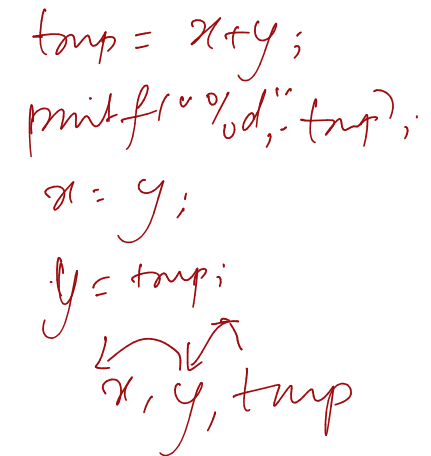 tmp = x+y;
printf("%d,", tmp);
x = y;
y = tmp;
x, y, tmp